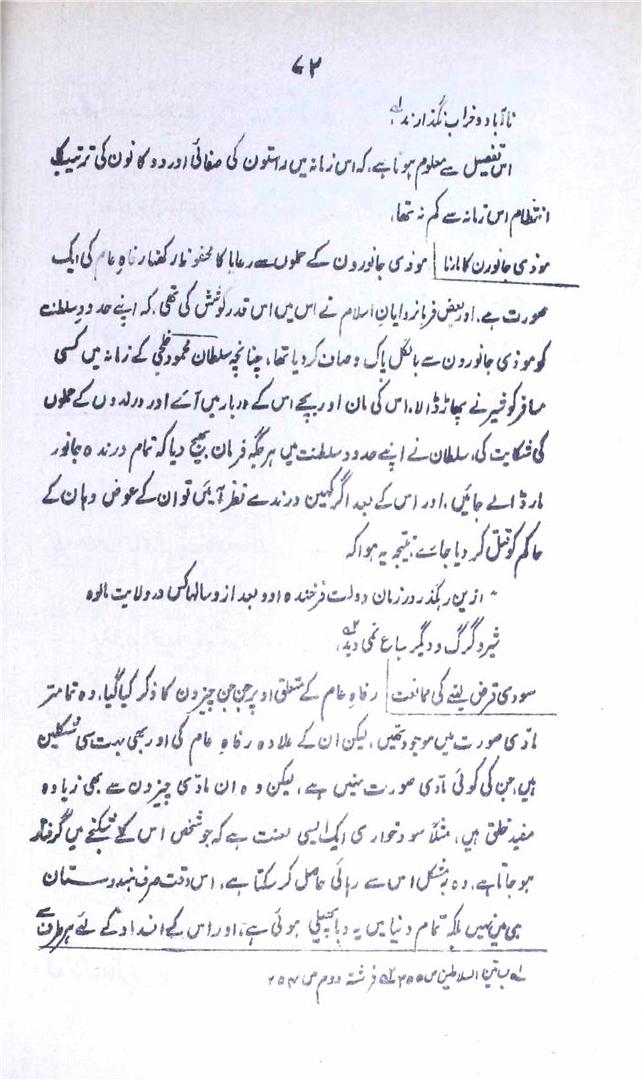 ۷۲
ناآباد و خراب نگذارند،
اس تفصیل سے معلوم ہوتا ہے، کہ اس زمانہ میں راستون کی صفائی اور دوکانون کی ترتیب کا
انتظام اس زمانہ سے کم نہ تھا،
موذی جانورن کا مارنا موذی جانورون کے حملوں سے رعایا کا محفوظ رکھنا رفاہِ عام کی ایک
صورت ہے، اور بعض فرمانروایانِ اسلام نے اس میں اس قدر کوشش کی تھی، کہ اپنے حدودِ سلطنت
کو موذی جانورون سے بالکل پاک و صاف کردیا تھا، چنانچہ سلطان محمود خلجی کے زمانہ میں کسی
مسافر کو شیر نے پھاڑ ڈالا، اس کی مان اور بچے اس کے دربار میں آئے اور درندوں کے حملوں
کی شکایت کی، سلطان نے اپنے حدود سلطنت میں ہر جگہ فرمان بھیج دیا کہ تمام درندہ جانور
مار ڈالے جائیں، اور اس کے بعد اگر کہین درندے نظر آئیں تو ان کے عوض وہان کے
حاکم کو قتل کر دیا جائے، نتیجہ یہ ہوا کہ
" ازین رہگذر در زمان دولت فرخندہ او و بعد ازو سالہا کس در ولایت مالوہ
شیر و گرگ و دیگر سباع نمی دید،
سودی قرض لینے کی ممانعت رفاہِ عام کے متعلق اوپر جن جن چیزون کا ذکر کیا گیا، وہ تمامتر
مادّی صورت میں موجود تھیں، لیکن ان کے علاوہ رفاہِ عام کی اور بھی بہت سی شکلین
ہیں، جن کی کوئی مادّی صورت نہیں ہے، لیکن وہ ان مادّی چیزون سے بھی زیادہ
مفید ہوتی ہیں، مثلاً سود خواری ایک ایسی لعنت ہے کہ جو شخص اس کے شکنجے میں گرفتار
ہو جاتا ہے، وہ بہ مشکل اس سے رہائی حاصل کر سکتا ہے، اس وقت صرف ہندوستان
ہی میں نہیں بلکہ تمام دنیا میں یہ وبا پھیلی ہوئی ہے، اور اس کے انسداد کے لئے ہر طرف سے
بساتین السلاطین ص ۳۵۵ فرشتہ دوم ص ۲۵۴